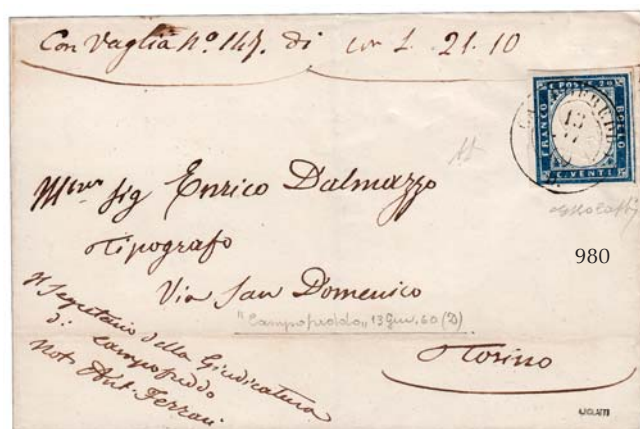 Con Vaglia nº. 147. di con L. 21. 10
C. POSTE 20
FRANCO
BOLLO
C. VENTI
13
sig Enrico Dalmazzo
Tipografo
980
Via San Domenico
"Campofreddo" 13 Giu. 60 (D)
Torino
Il Segretario della Giudicatura
di Campofreddo
Not. Ant. Ferrari